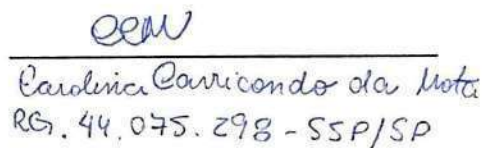 CCM
Carolina Carricondo da Mota
RG. 44.075.298-SSP/SP